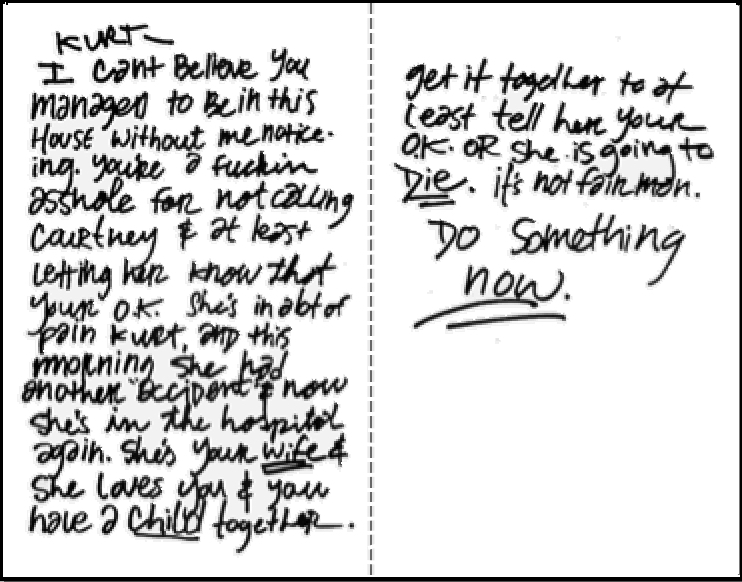 KURT—
I can't Believe You
managed to Be in this
House without me notice-
ing. You're a fuckin
asshole for not calling
Courtney & at least
letting her know that
your O.K. She's in a lot of
pain Kurt, and this
morning she had
another "accident" & now
she's in the hospital
again. She's your wife &
She loves you & you
have a child together.
get it together to at
least tell her your
O.K. OR she is going to
Die. it's not fair man.
DO Something
now.